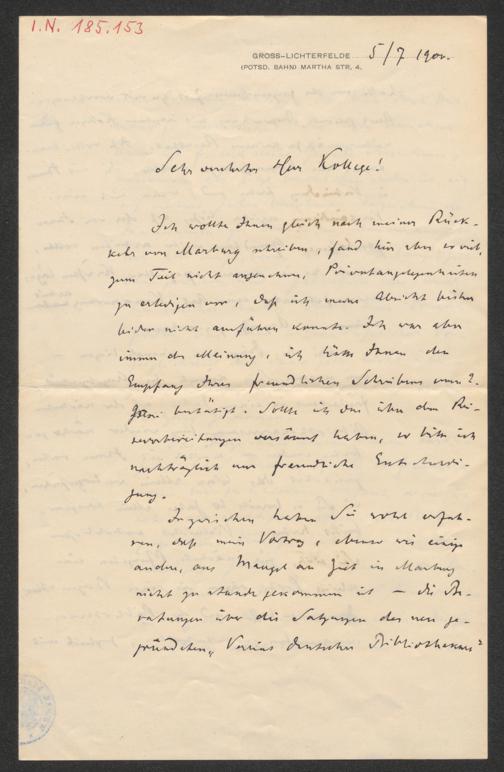 I.N. 185.153
GROSS-LICHTERFELDE 5/7 1900.
(POTSD. BAHN) MARTHA STR. 4.
Sehr verehrter Herr Kollege!
Ich wollte Ihnen gleich nach meiner Rück-
kehr von Marburg schreiben, fand hier aber so viel,
zum Teil nicht angenehme, Privatangelegenheiten
zu erledigen vor, daß ich meine Absicht bisher
leider nicht ausführen konnte. Ich war aber
immer der Meinung, ich hätte Ihnen den
Empfang Ihres freundlichen Schreibens vom 2.
Juni bestätigt. Sollte ich das über den Rei-
sevorbereitungen versäumt haben, so bitte ich
nachträglich um freundliche Entschuldi-
gung.
Inzwischen haben Sie wohl erfah-
ren, daß mein Vortrag, ebenso wie einige
andre, aus Mangel an Zeit in Marburg
nicht zu stande gekommen ist — die Be-
ratungen über die Satzungen des neu ge-
gründeten „Vereins deutscher Bibliothekare"